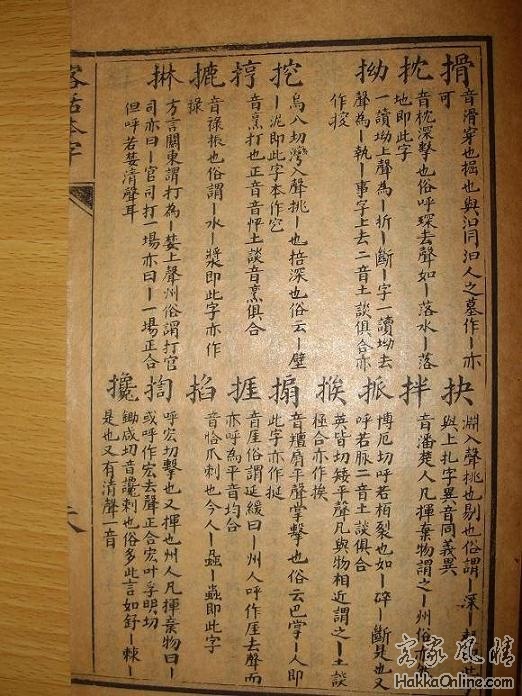 客話本字
搰
音滑穿也掘也與汩同汩人之墓作｜亦
可
抌
音枕深擊也俗呼琛去聲如｜落水｜落
地即此字
拗
一讀坳上聲為｜折｜斷｜字一讀坳去
聲為｜執｜事字上去二音土談俱合亦
作
挖
烏八切灣入聲挑｜也掊深也俗云｜壁
｜泥即此字本作穵
揨
音烹打也正音音怦土談音烹俱合
摝
音祿振也俗謂｜水｜漿即此字亦作
方言關東謂打為｜婪上聲州俗謂打官
司亦曰｜官司打一場亦曰｜一場正合
但呼若婪清聲耳
抉
淵入聲挑也剔也俗謂｜深｜
與上扎字異音同義異
拌
音潘楚人凡揮棄物謂之｜州俗亦
博厄切呼若栢裂也如｜碎｜斷是也又
呼若脈二音土談俱合
挨
英皆切矮平聲凡與物相近謂之｜土談
極合亦作挨
搧
音羶扇平聲掌擊也俗云巴掌｜人即
此字亦作挻
捱
音厓俗謂延緩曰｜州人呼作厓去聲而
亦呼為平音均合
掐
音恰爪刺也今人｜蝨｜蟲即此字
揈
呼宏切擊也又揮也州人凡揮棄物曰｜
或呼作宏去聲正合宏叶孚明切
攙
鋤咸切音讒刺也俗多此言如舒｜棘｜
是也又有清聲一音
客家風情
HakkaOnline.com